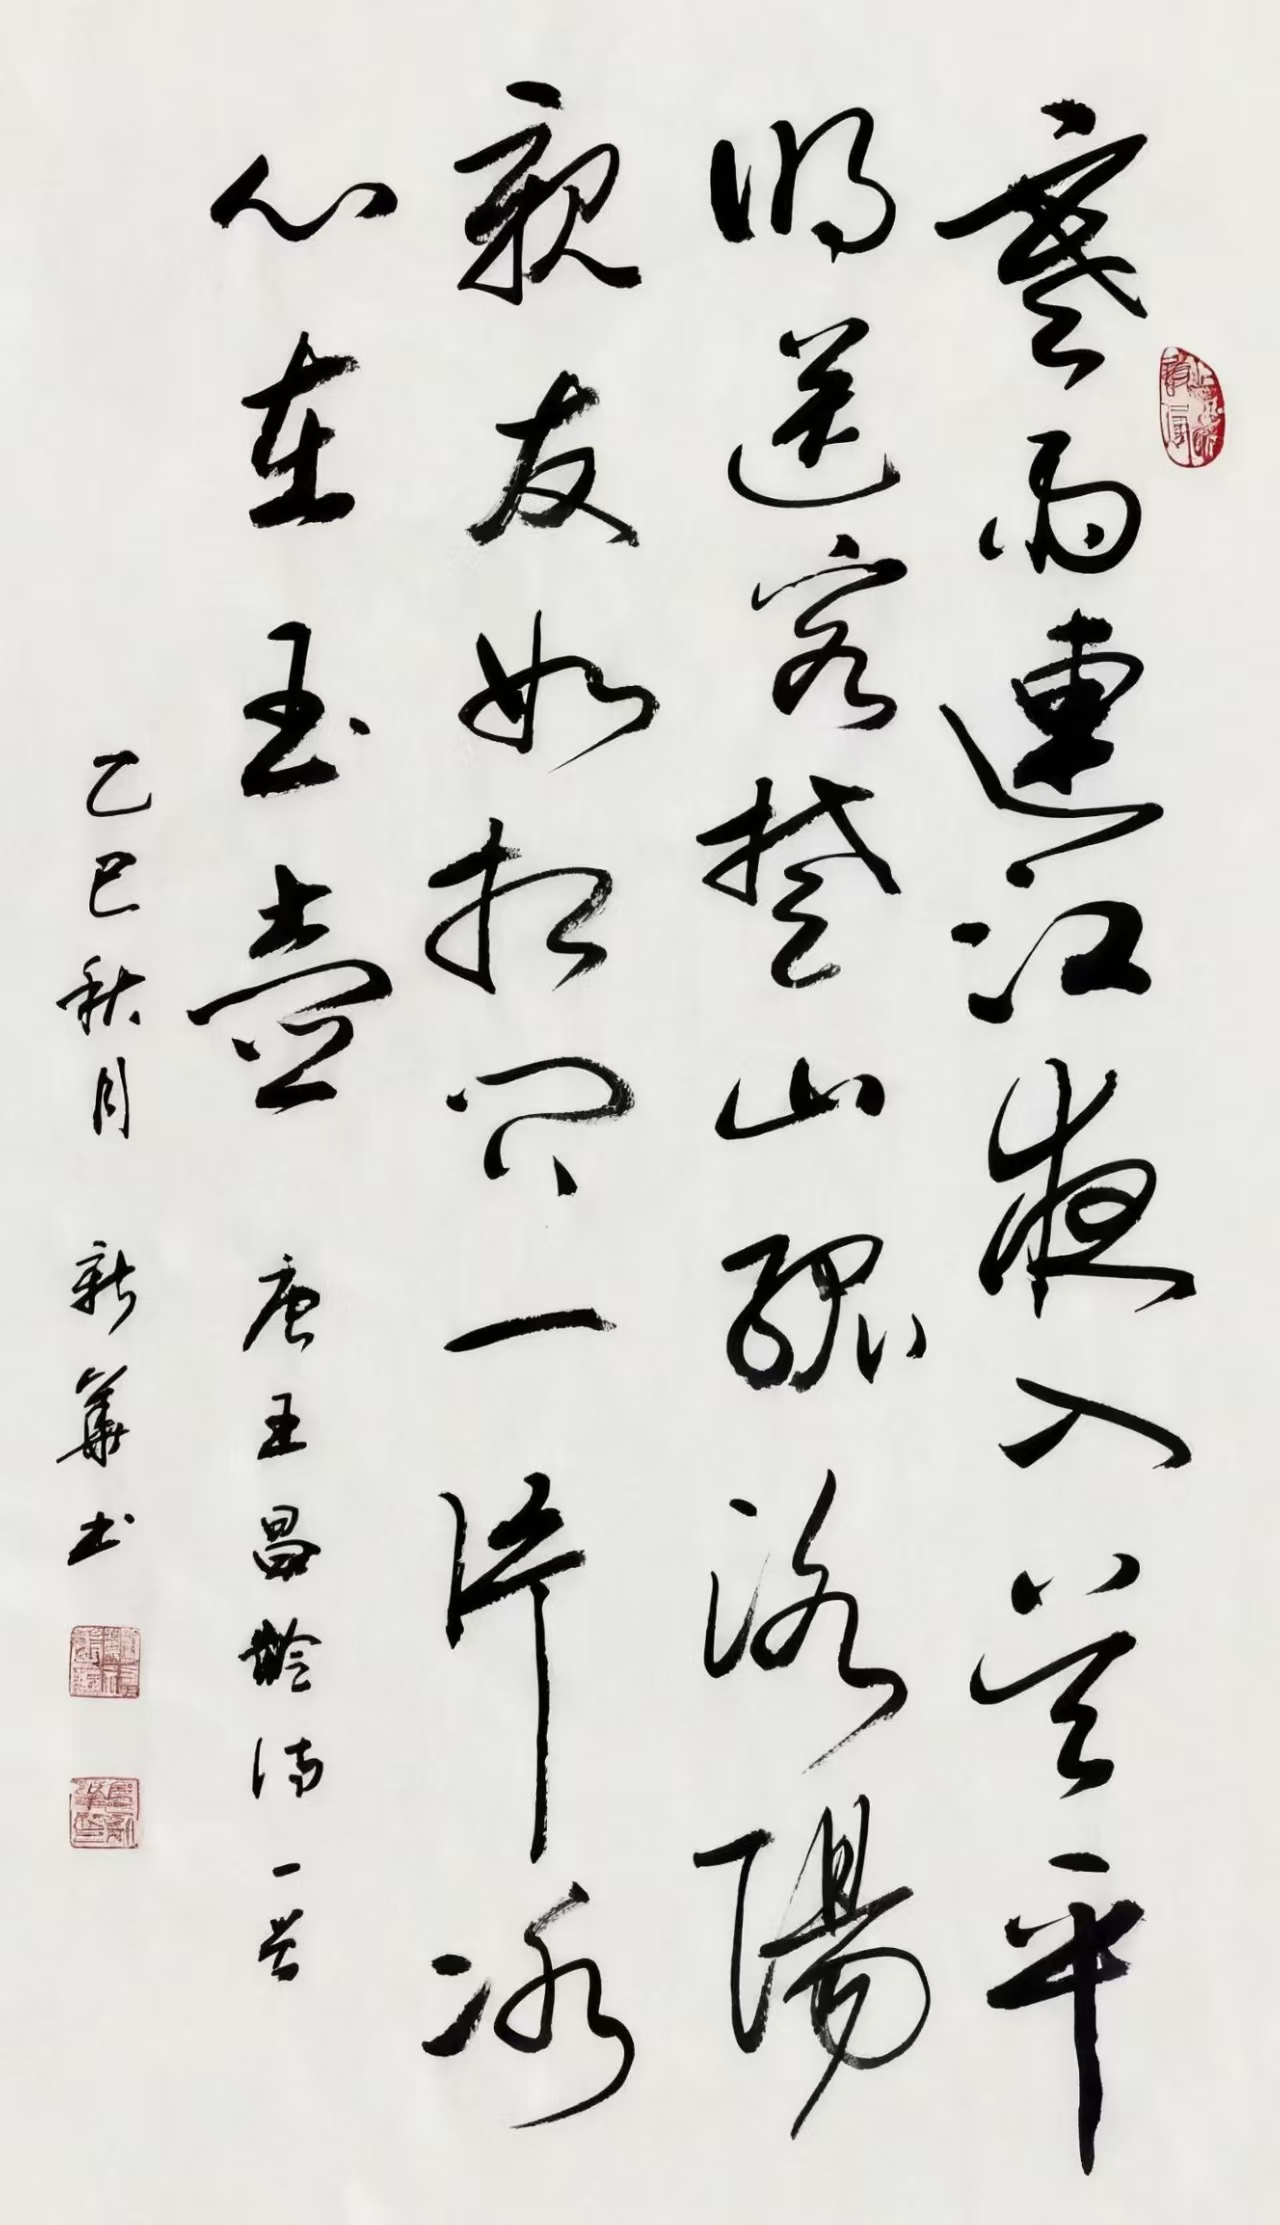 寒雨連江夜入吴平
明送客楚山孤洛陽
親友如相问一片冰
心在玉壶
唐王昌龄诗一首
乙巳秋月 新華书